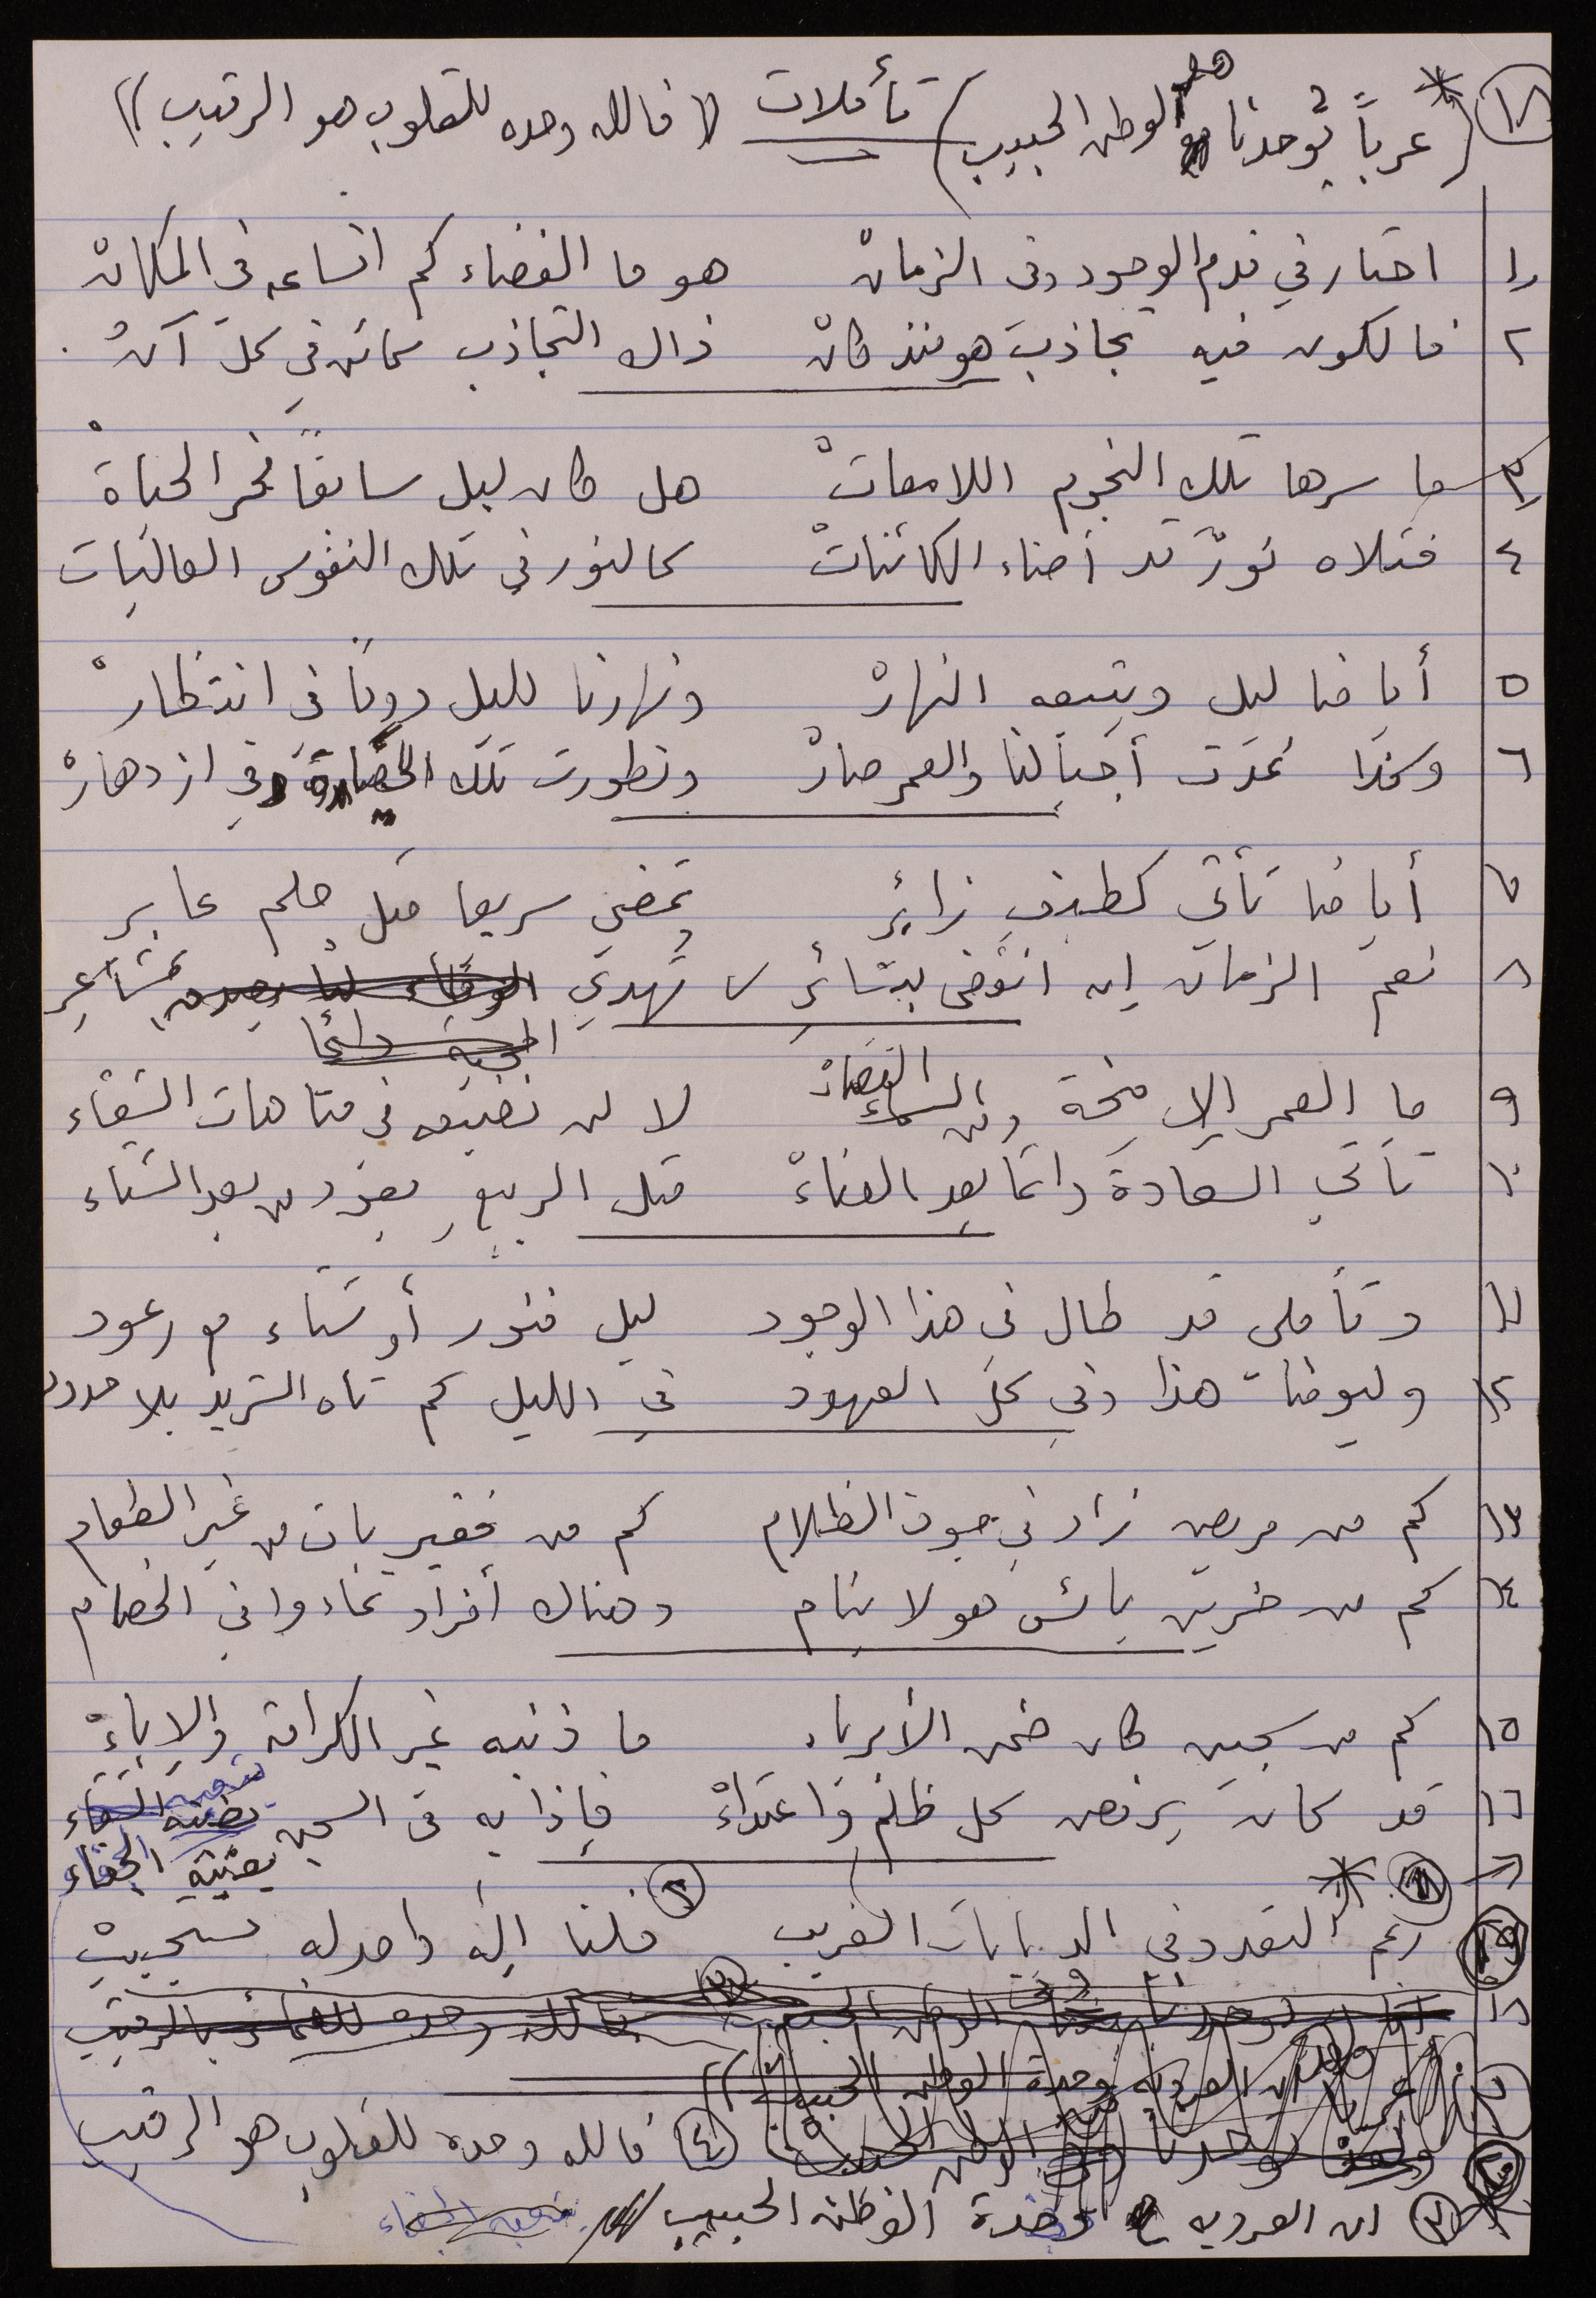 ١٨ (* عرباً توحدنا هو الوطن الحبيب) تأملات ((فالله وحده للقلوب هو الرقيب))
١ احتار في قدم الوجود وفى الزمانْ هو ما الفضاء كم اتساعه فى المكانْ
٢ فالكون فيه تجاذبَ هو منذ كانْ ذاك التجاذب كائن في كل آنْ
٣ ما سرها تلك النجوم اللامعاتْ هل كان ليل سابقاً فجر الحياةْ
٤ فتلاه نورٌ قد أضاء الكائناتْ كالنور في تلك النفوس العاليات
٥ أيامنا ليل ويتبعه النهارْ ونهارنا لليل دوماً فى انتظارْ
٦ وكذا تمرّ أجيالنا والعمر صارْ وتطورت تلك الحضارة في ازدهارْ
٧ أيامنا تأتي كطيف زائرِ تمضي سريعا مثل حلم عابر
٨ نعم الزمان إن انقضى ببشائرِ تهدي الوفاء لنا بصدق مشاعر
المحبة دائما
القضاءْ
٩ ما العمر إلا منحة من السماء لا لن نضيعه فى متاهات الشقاء
١٠ تأتي السعادة دائما بعد العناءْ مثل الربيع يعود من بعد الشتاء
١١ وتأملى قد طال فى هذا الوجود ليل فنور أو شتاء مع رعود
١٢ وليومنا هذا وفى كل العهود في الليل كم تاه الشريد بلا حدود
١٣ كم من مريض زاد في جوف الظلام كم من فقير بات من غير الطعام
١٤ كم من حزين بائس هو لا ينام وهناك أفراد تمادوا في الخصام
١٥ كم من سجين كان ضمن الأبرياء ما ذنبه غير الكرامة والإباءْ
١٦ قد كان يرفض كل ظلم واعتداءْ فإذا به فى السجن يضنيه الشقاء
يضنيه الجفاء
١ * رغم التعدد في الديانات الغريب ٢ فلنا إله واحد له نستجيبْ
١٨ الوطن الحبيب فالله وحده الرقيب
العروبة وحدة الوطن الحبيب
توحدنا الوطن ٤ فالله وحده للقلوب هو الرقيب
٣ ان العروبه وحدة الوطن الحبيب